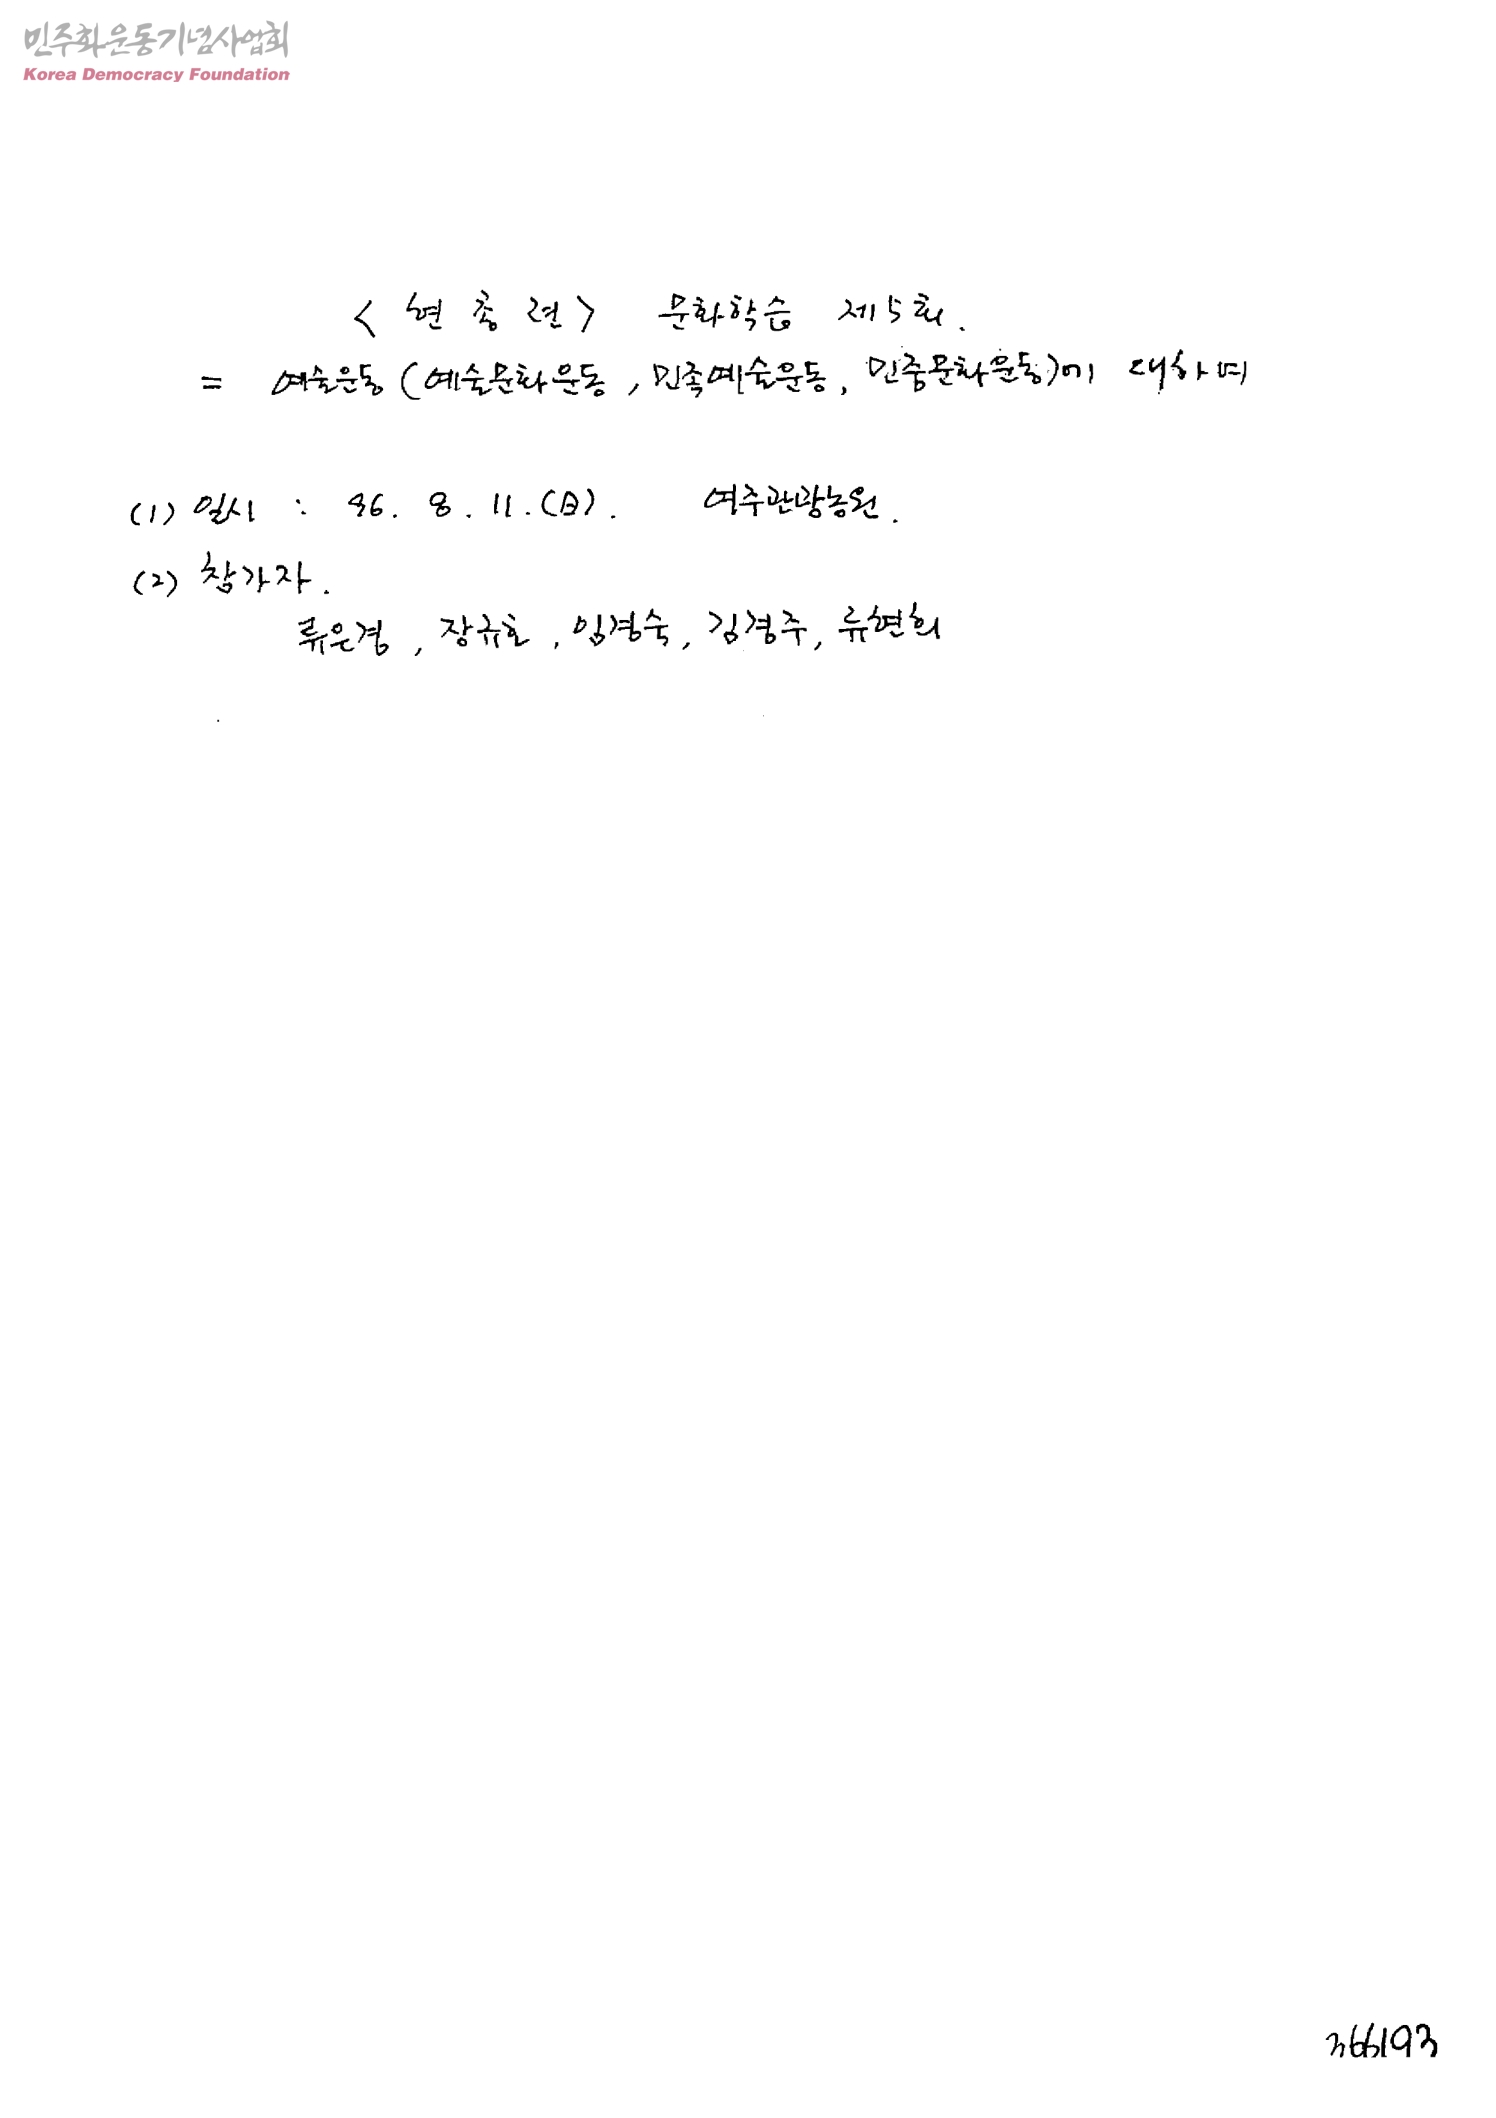 민주화운동기념사업회
Korea Democracy Foundation
< 현 총 련 > 문화학습 제5회.
= 예술운동 (예술문화운동, 민족예술운동, 민중문화운동)에 대하며
(1) 일시 : 96. 8. 11. (日). 여주관광농원.
(2) 참가자.
류은경, 장규호, 임경숙, 김경주, 류현희
366193